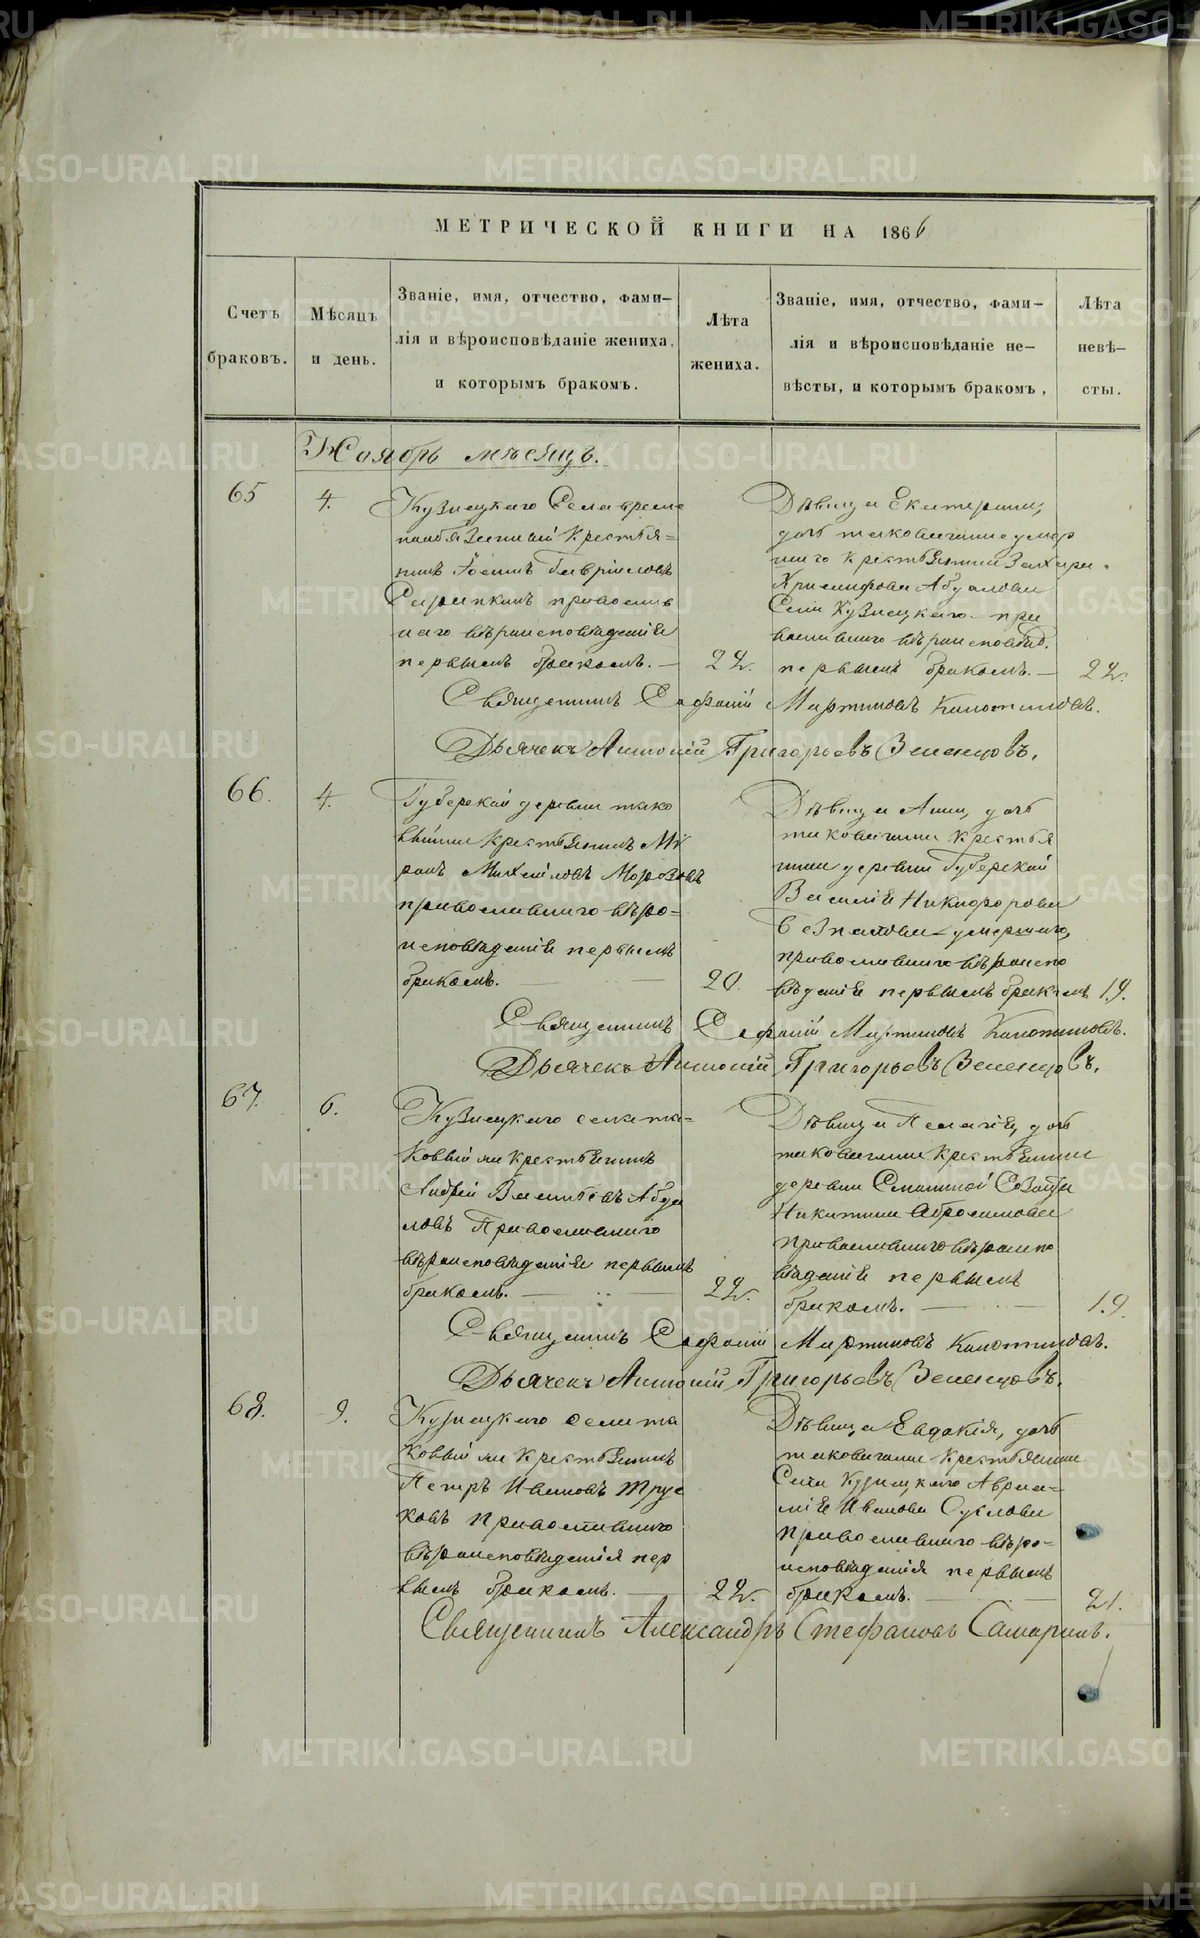 МЕТРИЧЕСКОЙ КНИГИ НА 1866
Счетъ браковъ.
Мѣсяцъ и день.
Званіе, имя, отчество, фами-
лія и вѣроисповѣданіе жениха,
и которымъ бракомъ.
Лѣта жениха.
Званіе, имя, отчество, фами-
лія и вѣроисповѣданіе не-
вѣсты, и которымъ бракомъ,
Лѣта невѣ-
сты.
Ноябрь мѣсяцъ.
65
4.
Кузнецкаго Села време
ннобязанный Крестья-
нинъ Іосифъ Гавріиловъ
православ
наго вѣроисповѣданія
первымъ бракомъ.
22.
Дѣвица Екатерина,
дочь таковагоже умер
шаго крестьянина Захара
Абуалова
Села Кузнецкаго пра
вославнаго вѣроисповѣд.
первымъ бракомъ.
22.
Священникъ Мартиновъ
Дьячекъ Антоній Григорьевъ Зеленцовъ.
66.
4.
Губерской деревни тако
выйже крестьянинъ Мѵ
ронъ Михайловъ Морозовъ
православнаго вѣро-
исповѣданія первымъ
бракомъ.
20.
Дѣвица Анна, дочь
таковагоже крестья
нина деревни Губерской
Василія Никифорова
умершаго,
православнаго вѣроиспо
вѣданія первымъ бракомъ
19.
Священникъ Мартиновъ
Дьячекъ Антоній Григорьевъ Зеленцовъ.
67.
6.
Кузнецкаго села та-
ковый же крестьянинъ
Андрей Васильевъ Абуа
ловъ Православнаго
вѣроисповѣданія первымъ
бракомъ.
22.
Дѣвица Пелагія, дочь
таковагоже крестьянина
деревни
Никитина Абросимова
православнаго вѣроиспо
вѣданія первымъ
бракомъ.
19.
Священникъ Мартиновъ
Дьячекъ Антоній Григорьевъ Зеленцовъ.
68.
9.
Кузнецкаго села та
ковый же Крестьянинъ
Петръ Ивановъ Трус
ковъ Православнаго
вѣроисповѣданія пер
вымъ бракомъ.
22.
Дѣвица Евдокія, дочь
таковагоже Крестьянина
Села Кузнецкаго Авраа-
мія Иванова Суслова
Православнаго вѣро-
исповѣданія первымъ
бракомъ.
21.
Священникъ Александръ Стефановъ Самаринъ.
METRIKI.GASO-URAL.RU